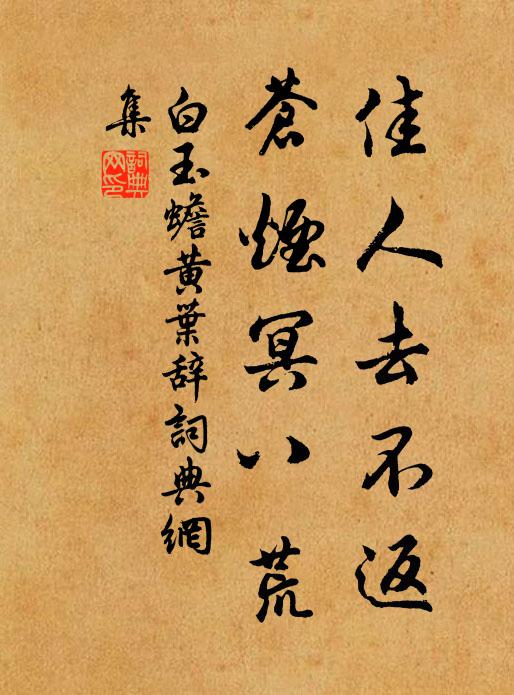 佳人去不返
蒼煙冥八荒
白玉蟾黃葉辞詞典網
集
詞典
网印